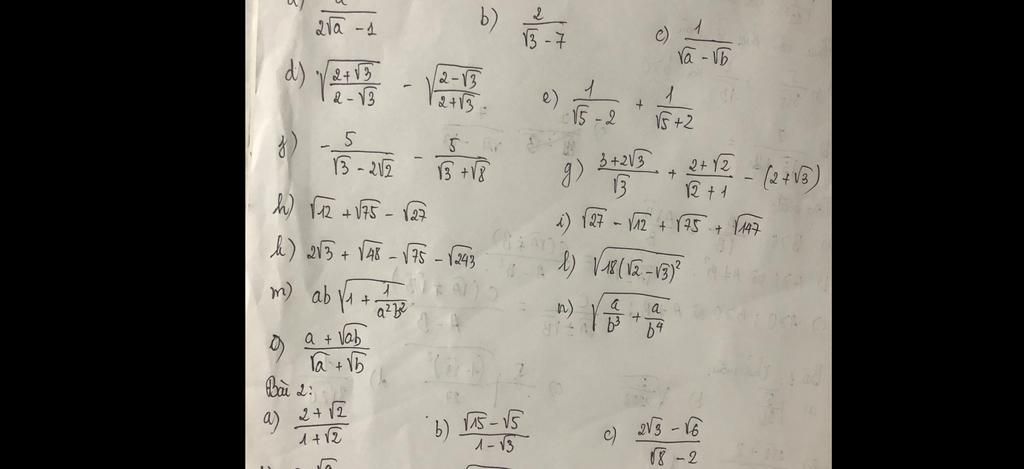 a) a/(2√a - 1) b) 2/(√3 - 7) c) 1/(√a - √b)
d) √((2+√3)/(2-√3)) - √((2-√3)/(2+√3)) e) 1/(√5 - 2) + 1/(√5+2)
f) -5/(√3 - 2√2) - 5/(√3 + √8) g) (3+2√3)/√3 + (2+√2)/(√2+1) - (2+√3)
h) √12 + √75 - √27 i) √27 - √12 + √75 + √147
k) 2√3 + √48 - √75 - √243 l) √(18(√2 - √3)²)
m) ab√(1 + 1/(a²b²)) n) √(a/b³ + a/b⁴)
o) (a + √ab)/(√a + √b)
Bài 2:
a) (2+√2)/(1+√2) b) (√15 - √5)/(1 - √3) c) (2√3 - √6)/(√8 - 2)